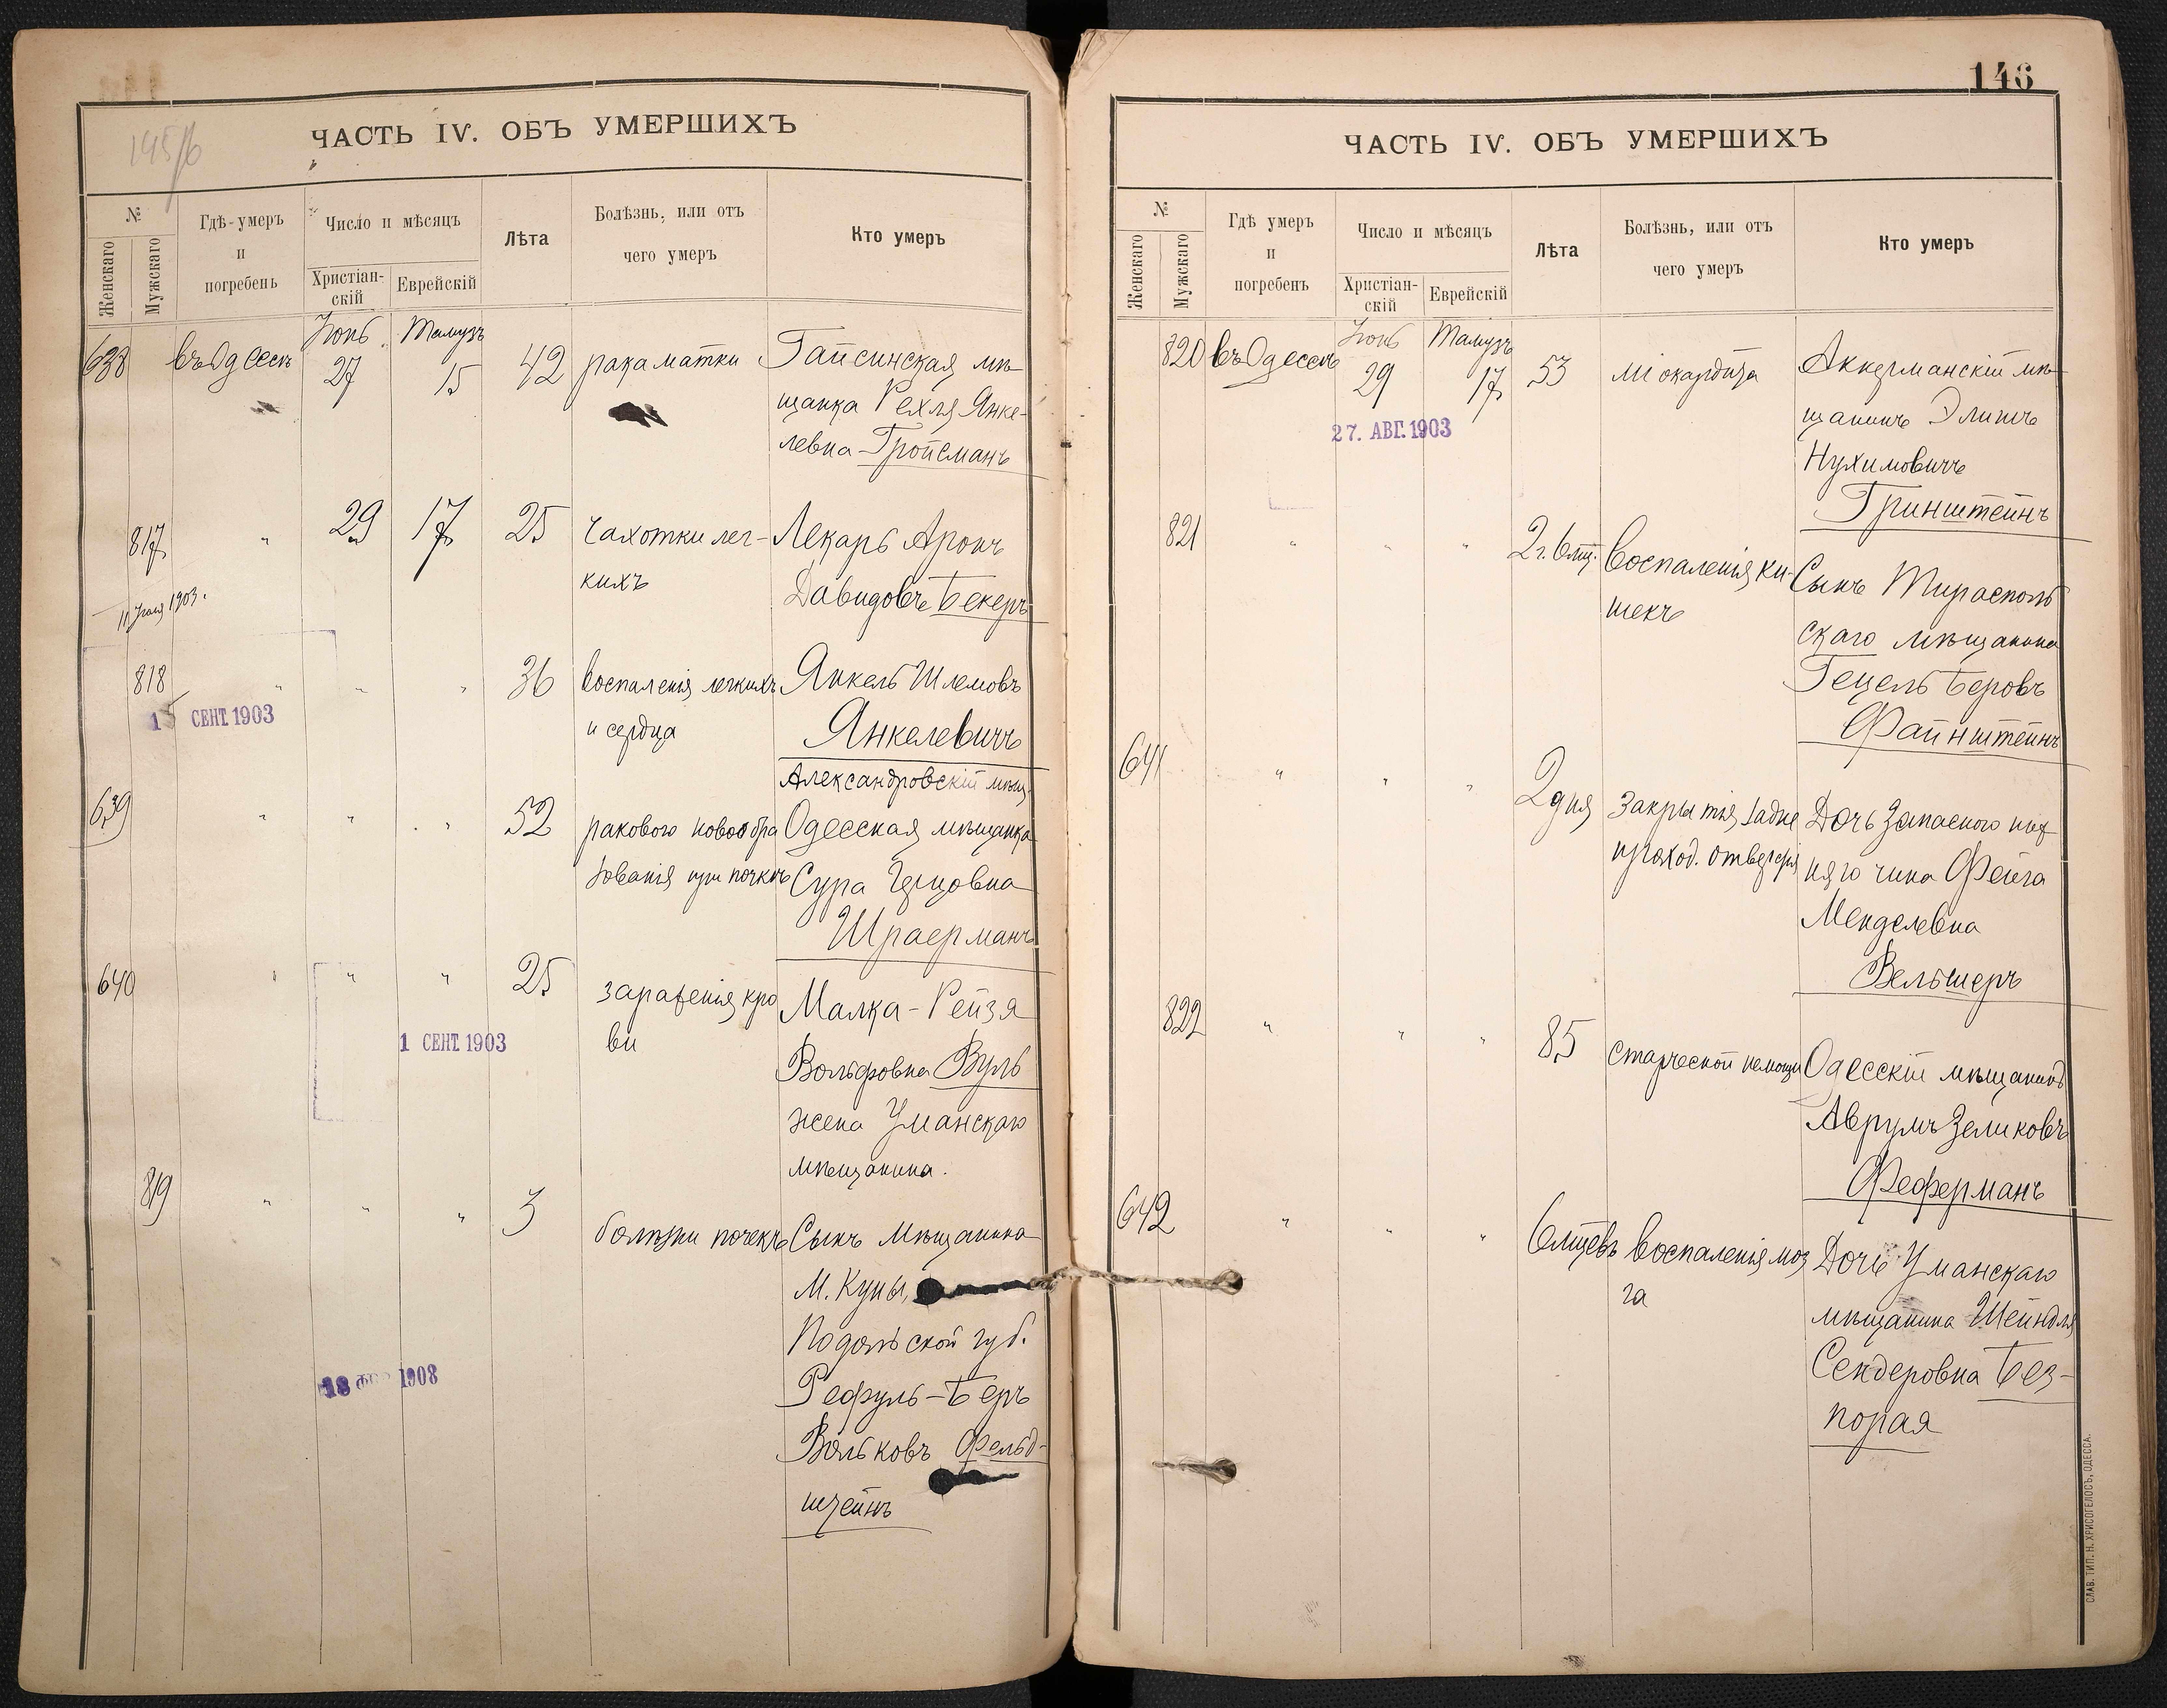 145/б
ЧАСТЬ IV. ОБЪ УМЕРШИХЪ
№
Женскаго
Мужскаго
Гдѣ умеръ
и
погребенъ
Число и мѣсяцъ
Христіан-
скій
Еврейскій
Лѣта
Болѣзнь, или отъ
чего умеръ
Кто умеръ
638 въ Одессѣ Іюнь 27 Тамузъ 15 42 рака матки Гайсинская мѣ-
щанка Рехля Янке-
левна Гройсманъ
817 " 29 17 25 чахотки лег- Лекарь Аронъ
кихъ Давидовъ Бекеръ
11 Іюля 1903.
818 " " " 36 воспаленія легкихъ Янкель Шлемовъ
1 СЕНТ. 1903
и сердца Янкелевичъ
Александровскій мѣщ.
639 " " " 52 ракового новообра Одесская мѣщанка
зованія при почкѣ Сура
Шраерманъ
640 " " " 25 зараженія кро Малка-Рейзя
1 СЕНТ. 1903
ви Вольфовна Вуль
жена Уманскаго
мѣщанина.
819 " " " 3 болѣзни почекъ Сынъ мѣщанина
М. Куны,
Подольской губ.
Рефуль-Беръ
18 1908
Вольковъ Фельд-
штейнъ
146
ЧАСТЬ IV. ОБЪ УМЕРШИХЪ
№
Женскаго
Мужскаго
Гдѣ умеръ
и
погребенъ
Число и мѣсяцъ
Христіан-
скій
Еврейскій
Лѣта
Болѣзнь, или отъ
чего умеръ
Кто умеръ
820 въ Одессѣ Іюнь 29 Тамузъ 17 53 міокардита Аккерманскій мѣ-
27. АВГ. 1903
щанинъ Элипъ
Нухимовичъ
Гринштейнъ
821 " " " 2 г. 6 мц. воспаленія ки- Сынъ Тирасполь
шекъ скаго мѣщанина
Гецель Беровъ
Файнштейнъ
641 " " " 2 дня закрытія задне Дочь запаснаго ниж
проход. отверстія няго чина Фейга
Менделевна
Вельшеръ
822 " " " 85 старческой немощи Одесскій мѣщанинъ
Аврумъ Зеликовъ
Феферманъ
642 " " " 6 мцевъ воспаленія моз Дочь Уманскаго
га мѣщанина Шейндля
Сендеровна Без-
порая
СЛАВ. ТИП. Н. ХРИСОГЕЛОСЪ, ОДЕССА.